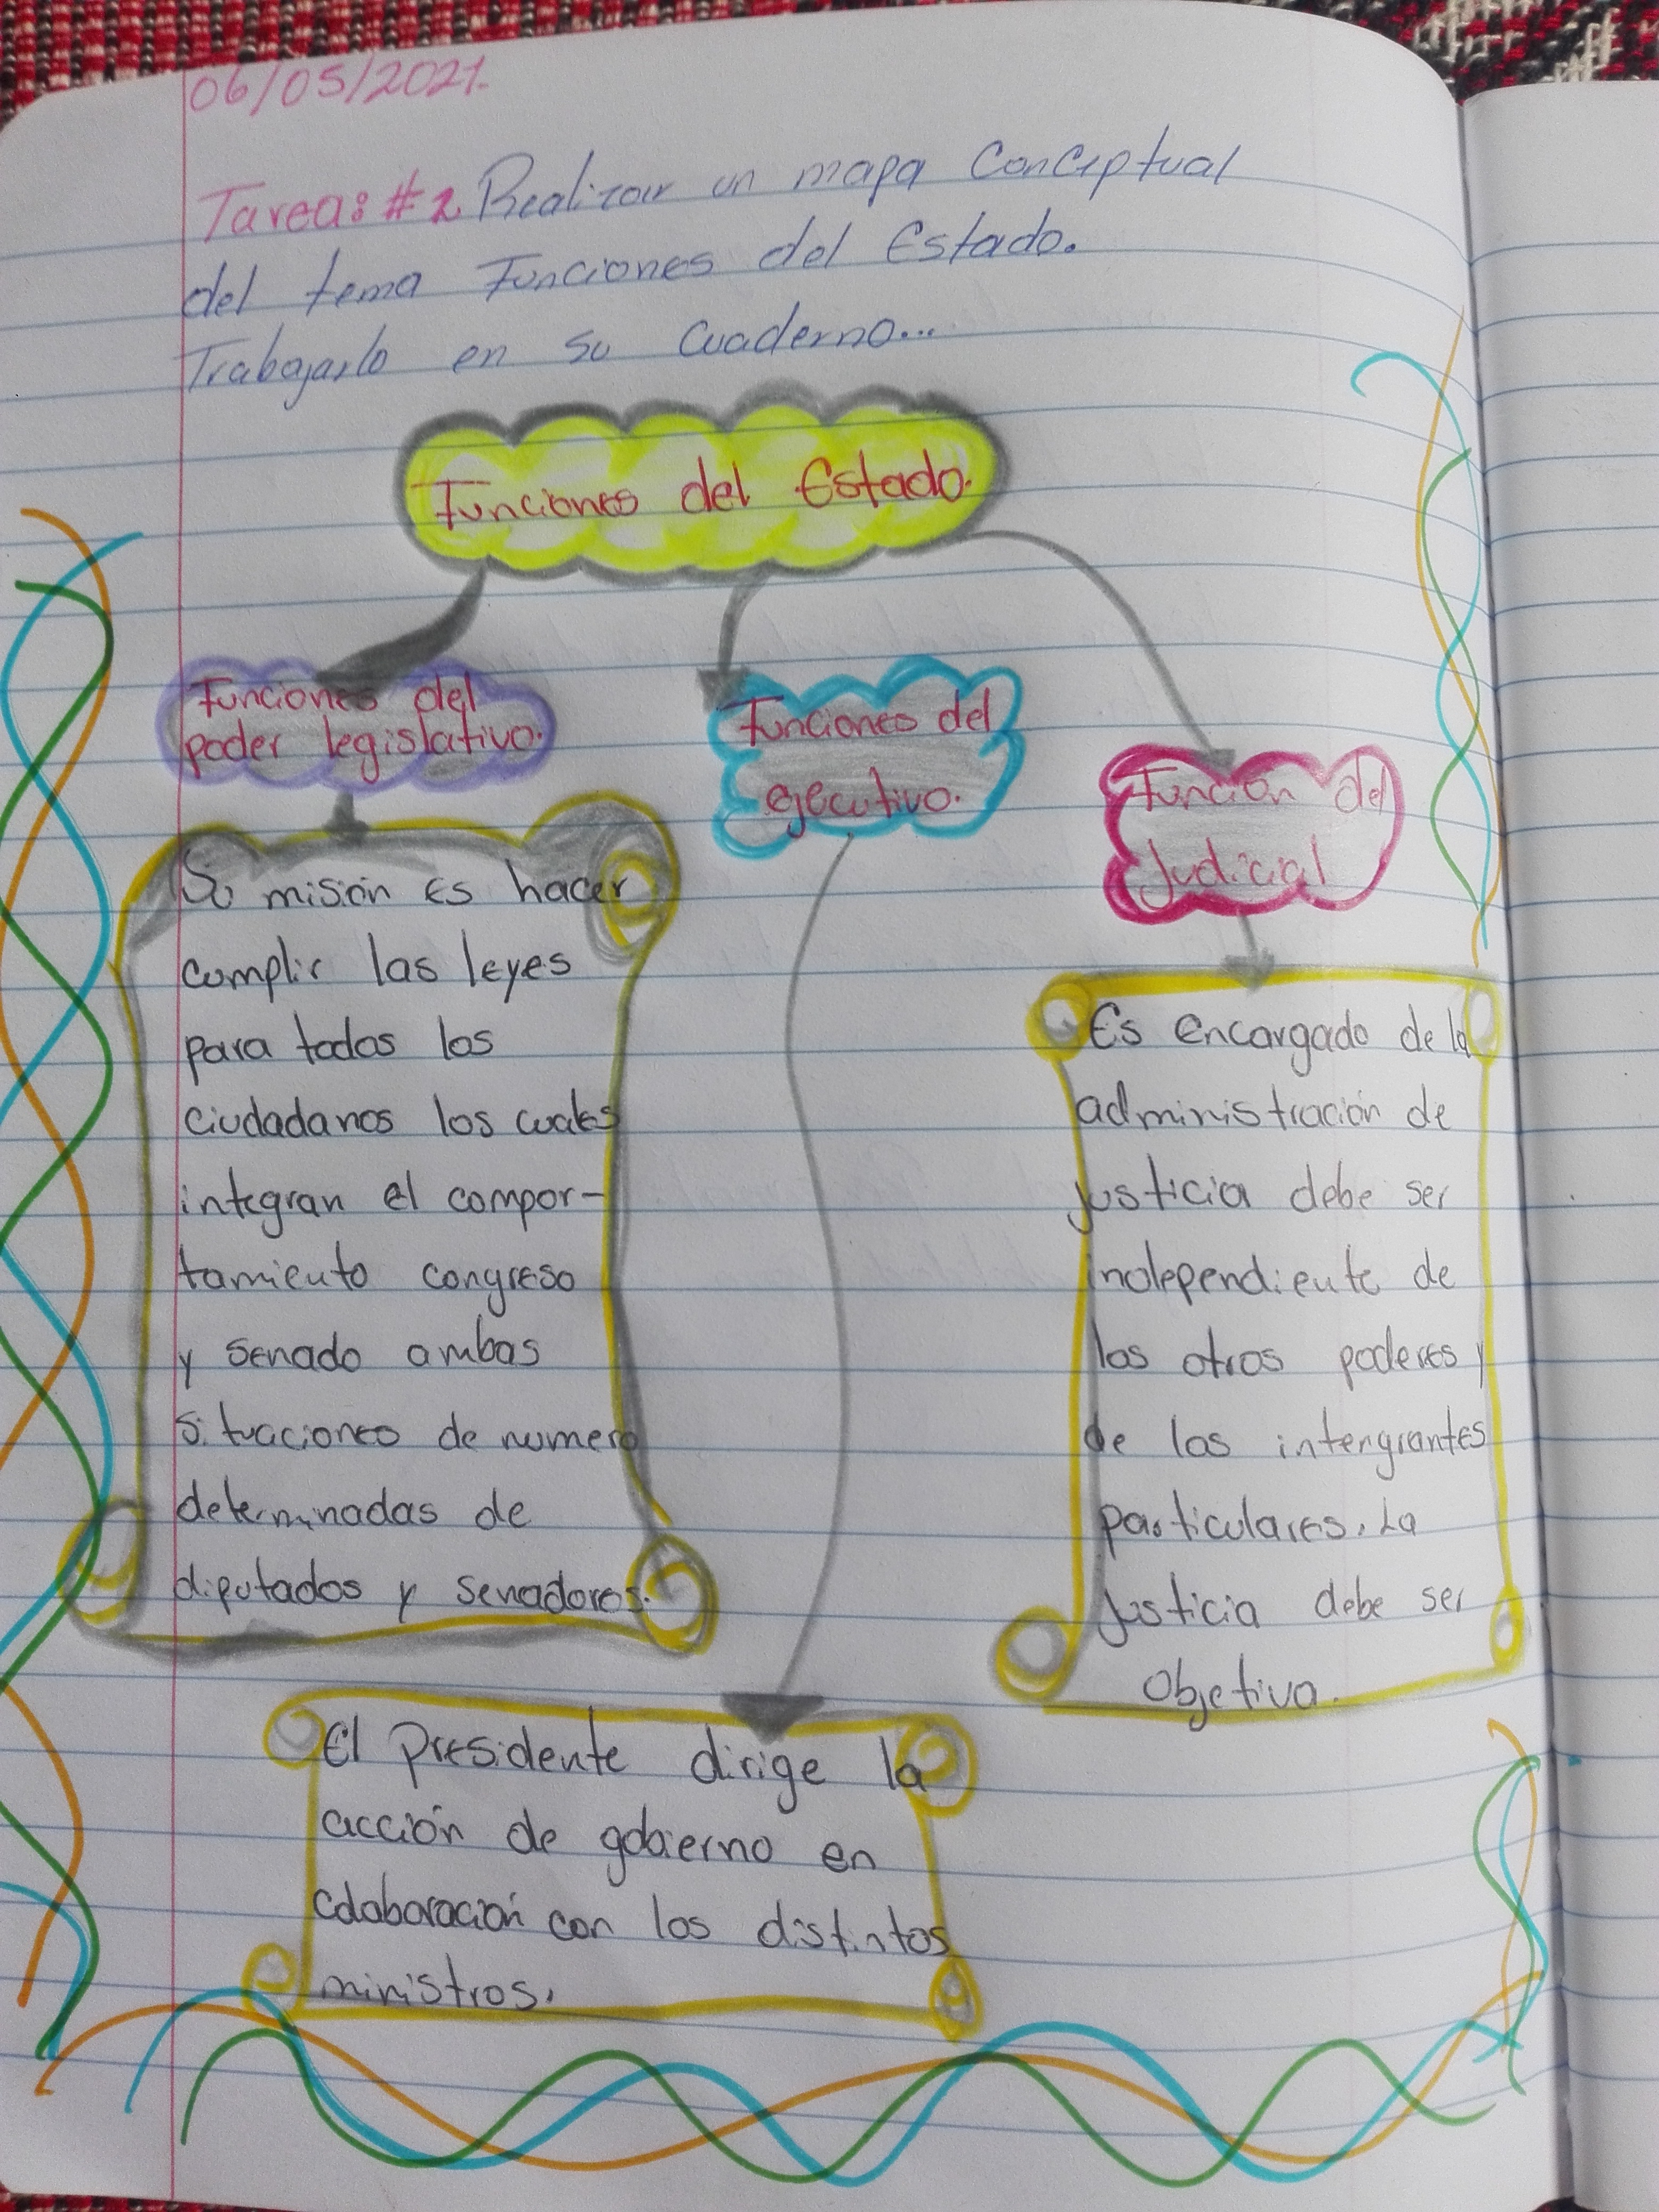 06/05/2021.
Tarea: #2. Realizar un mapa Conceptual
del tema Funciones del Estado.
Trabajarlo en su Cuaderno...
Funciones del Estado.
Funciones del
poder legislativo.
Su misión es hacer
cumplir las leyes
para todos los
ciudadanos los cuales
integran el compor-
tamiento congreso
y senado ambas
situaciones de numero
determinadas de
diputados y senadores.
Funciones del
ejecutivo.
El Presidente dirige la
acción de gobierno en
colaboración con los distintos
ministros.
Función del
Judicial
Es encargado de la
administración de
justicia debe ser
independiente de
los otros poderes y
de los intengrantes
particulares. La
justicia debe ser
objetiva.